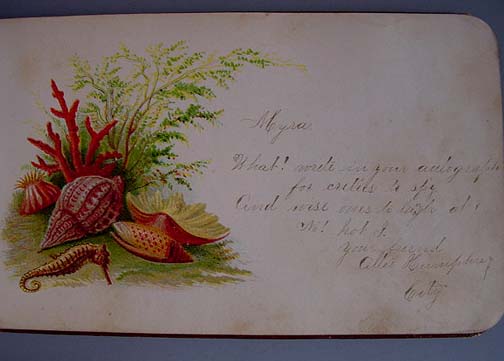 Myra
What! write in your autograph
for critics to spy
And wise ones to laugh at!
No! not I.
Your friend
Humphrey
City